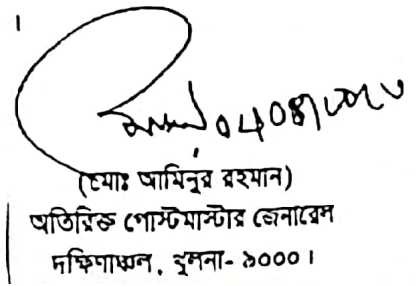 (মোঃ আমিনুর রহমান)
অতিরিক্ত পোস্টমাস্টার জেনারেল
দক্ষিণাঞ্চল, খুলনা- ৯০০০।